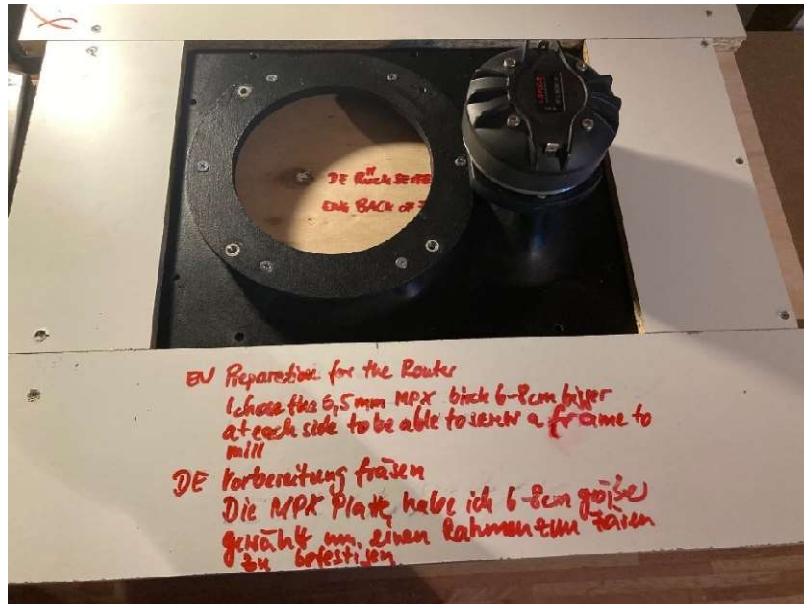 DE Rückseite
ENG BACK OF
EN Preparation for the Router
I chose the 6,5mm MPX birch 6-8cm bigger
at each side to be able to screw a frame to
mill
DE Vorbereitung fräsen
Die MPX Platte habe ich 6-8cm größer
gewählt um einen Rahmen zum fräsen
zu befestigen